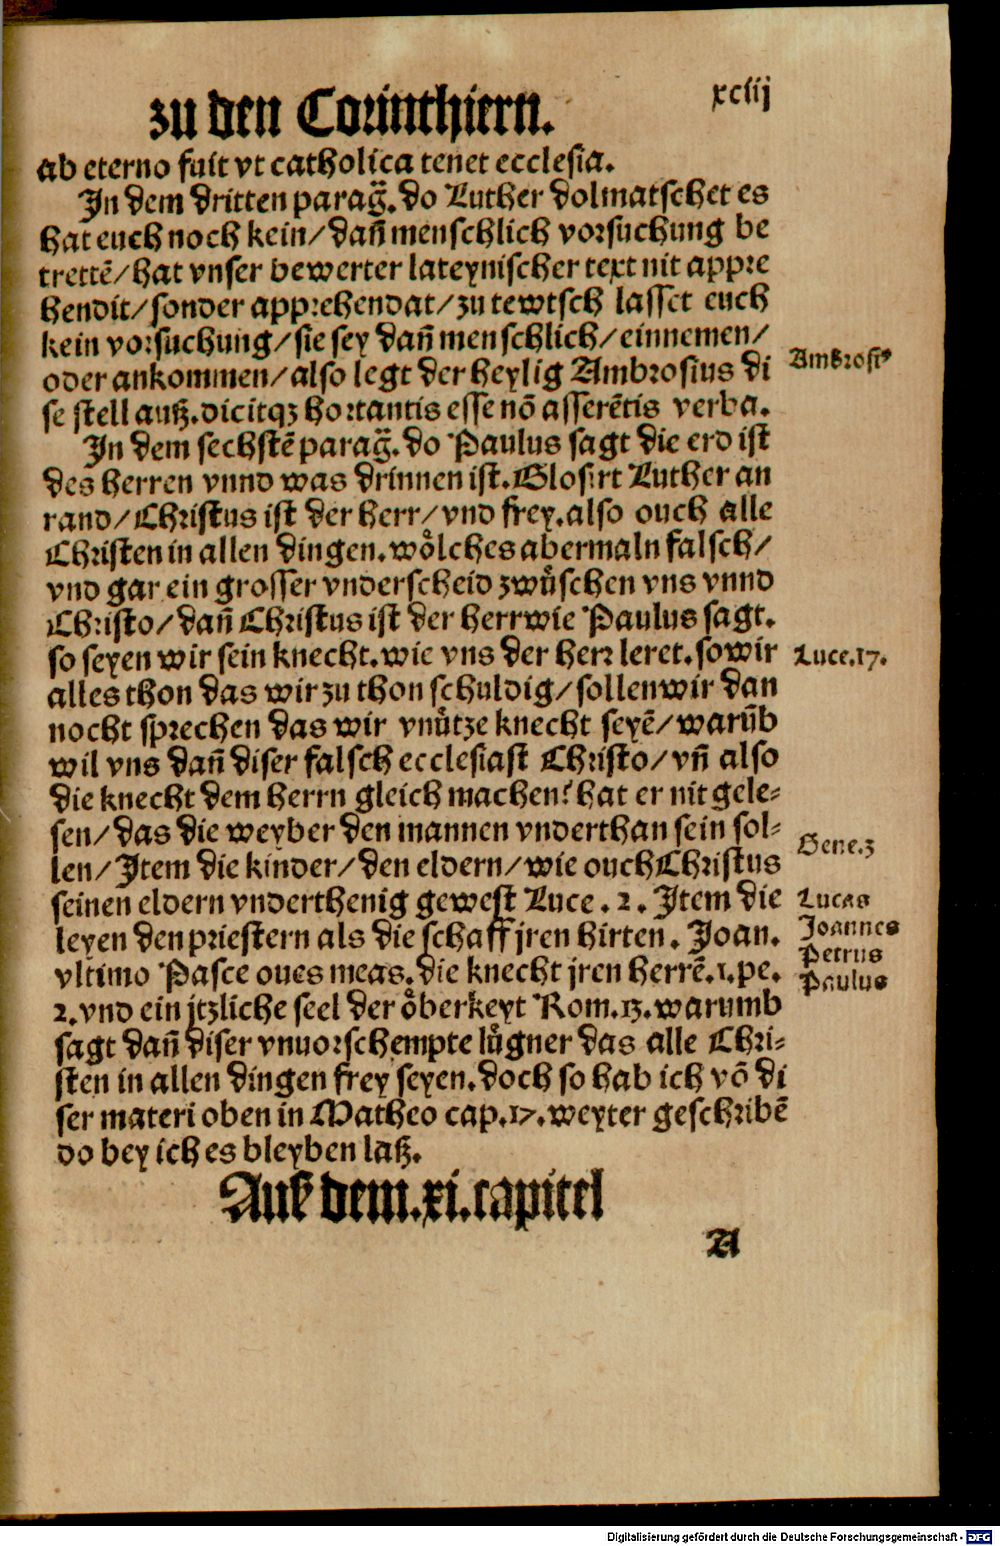 zu den Corinthiern.
xciij
ab eterno fuit vt catholica tenet ecclesia.
In dem dritten parag̃. do Luther dolmatschet es
hat euch noch kein/ dañ menschlich vorsuchung be
trettẽ/ hat vnser bewerter lateynischer text nit appre
hendit/ sonder apprehendat/ zu tewtsch lasset euch
kein vorsuchung/ sie sey dañ menschlich/ einnemen/
oder ankommen/ also legt der heylig Ambrosius di
Ambrosi⁹
se stell autz. dicitqz hortantis esse nõ asserẽtis verba.
In dem sechstẽ parag̃. do Paulus sagt die erd ist
des herren vnnd was drinnen ist. Glosirt Luther an
rand/ Christus ist der herr/ vnd frey. also ouch alle
Christen in allen dingen. woͤlches abermaln falsch/
vnd gar ein grosser vnderscheid zwuͤschen vns vnnd
Christo/ dañ Christus ist der herr wie Paulus sagt.
so seyen wir sein knecht. wie vns der herr leret. so wir
Luce.17.
alles thon das wir zu thon schuldig/ sollen wir dan
nocht sprechen das wir vnuͤtze knecht seyẽ/ warũb
wil vns dañ diser falsch ecclesiast Christo/ vñ also
die knecht dem herrn gleich machen? hat er nit gele⸗
sen/ das die weyber den mannen vnderthan sein sol⸗
Gene.3
len/ Item die kinder/ den eldern/ wie ouch Christus
seinen eldern vnderthenig gewest Luce . 2 . Item die
Lucas
leyen den priestern als die schaff jren hirten . Joan.
Joannes
Petrus
vltimo Pasce oues meas. die knecht jren herrẽ. 1. pe.
Paulus
2. vnd ein jtzliche seel der oͤberkeyt Rom. 13. warumb
sagt dañ diser vnuorschempte luͤgner das alle Chri⸗
sten in allen dingen frey seyen. doch so hab ich võ di
ser materi oben in Matheo cap. 17. weyter geschribẽ
do bey ich es bleyben latz.
Auß dem. xi. capitel
A
Digitalisierung gefördert durch die Deutsche Forschungsgemeinschaft - DFG